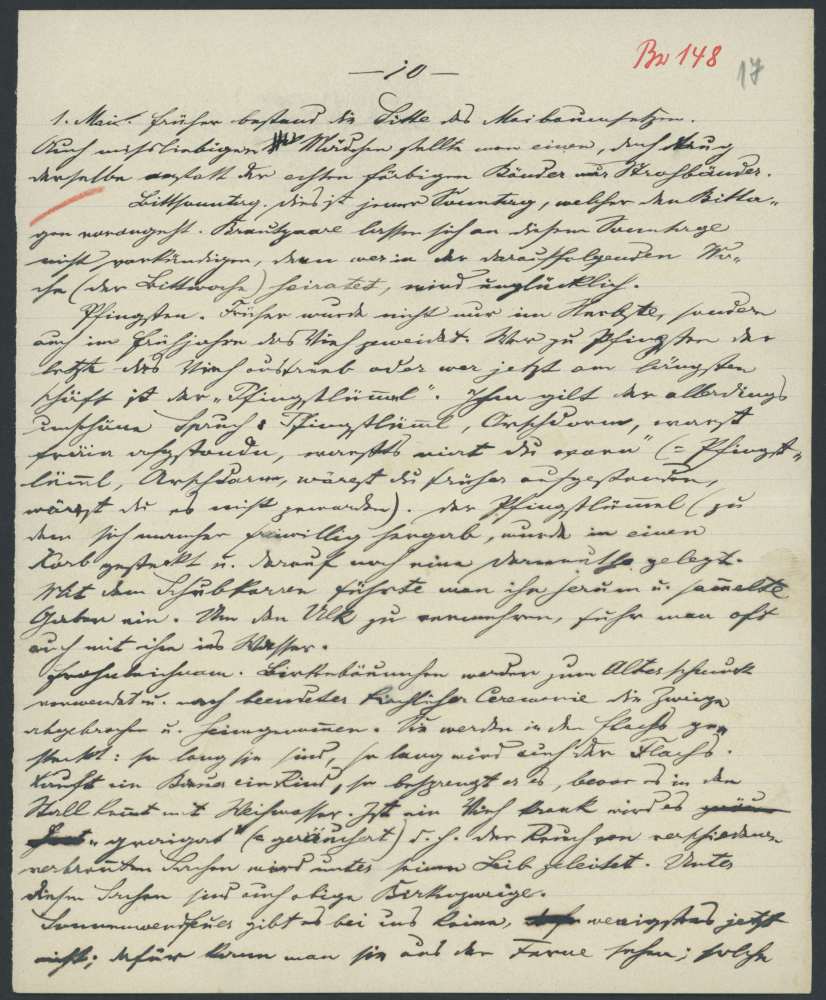 Bw 148
17
— 10 —
1. Mai. Früher bestand die Sitte des Maibaumsetzen.
Auch mißliebigen Mädchen stellte man einen, doch trug
derselbe anstatt der echten färbigen Bänder nur Strohbänder.
Bittsonntag, dies ist jener Sonntag, welcher den Bitta-
gen vorangeht. Brautpaare lassen sich an diesem Sonntage
nicht verkündigen, denn wer in der darauffolgenden Wo-
che (der Bittwoche) heiratet, wird unglücklich.
Pfingsten. Früher wurde nicht nur im Herbste, sondern
auch im Frühjahre das Vieh geweidet. Wer zu Pfingsten der
letzte das Vieh austrieb oder wer jetzt am längsten
schläft ist der „Pfingstlümml". Ihm gilt der allerdings
unschöne Spruch: Pfingstlümml, Orschdorm, warst
früia afgstandn, warsts niat du worn" (= Pfingst-
lümml, Arschdarm, wärest du früher aufgestanden,
wärest du es nicht geworden). Der Pfingstlümmel (zu
dem sich mancher freiwillig hergab, wurde in einen
Korb gesteckt u. darauf noch eine gelegt.
Mit dem Schubkarren führte man ihn herum u. sammelte
Gaben ein. Um den Ulk zu vermehren, fuhr man oft
auch mit ihm ins Wasser.
Frohnleichnam. Birkenbäumchen werden zum Altarschmuck
verwendet u. nach beendeter kirchlicher Ceremonie die Zweige
abgebrochen u. heimgenommen. Sie werden in den Flachs ge-
steckt: so lang sie sind, so lang wird auch der Flachs.
Kauft ein Bauer ein Rind, so besprengt er es, bevor es in den
Stall kommt mit Weihwasser. Ist ein Vieh krank wird es
„graigat" (= geräuchert) d. h. der Rauch von verschiedenen
verbrannten Sachen wird unter seinen Leib geleitet. Unter
diesen Sachen sind auch obige Birkenzweige.
Sonnenwendfeuer gibt es bei uns keine, wenigstens jetzt
nicht; dafür kann man sie aus der Ferne sehen; solche